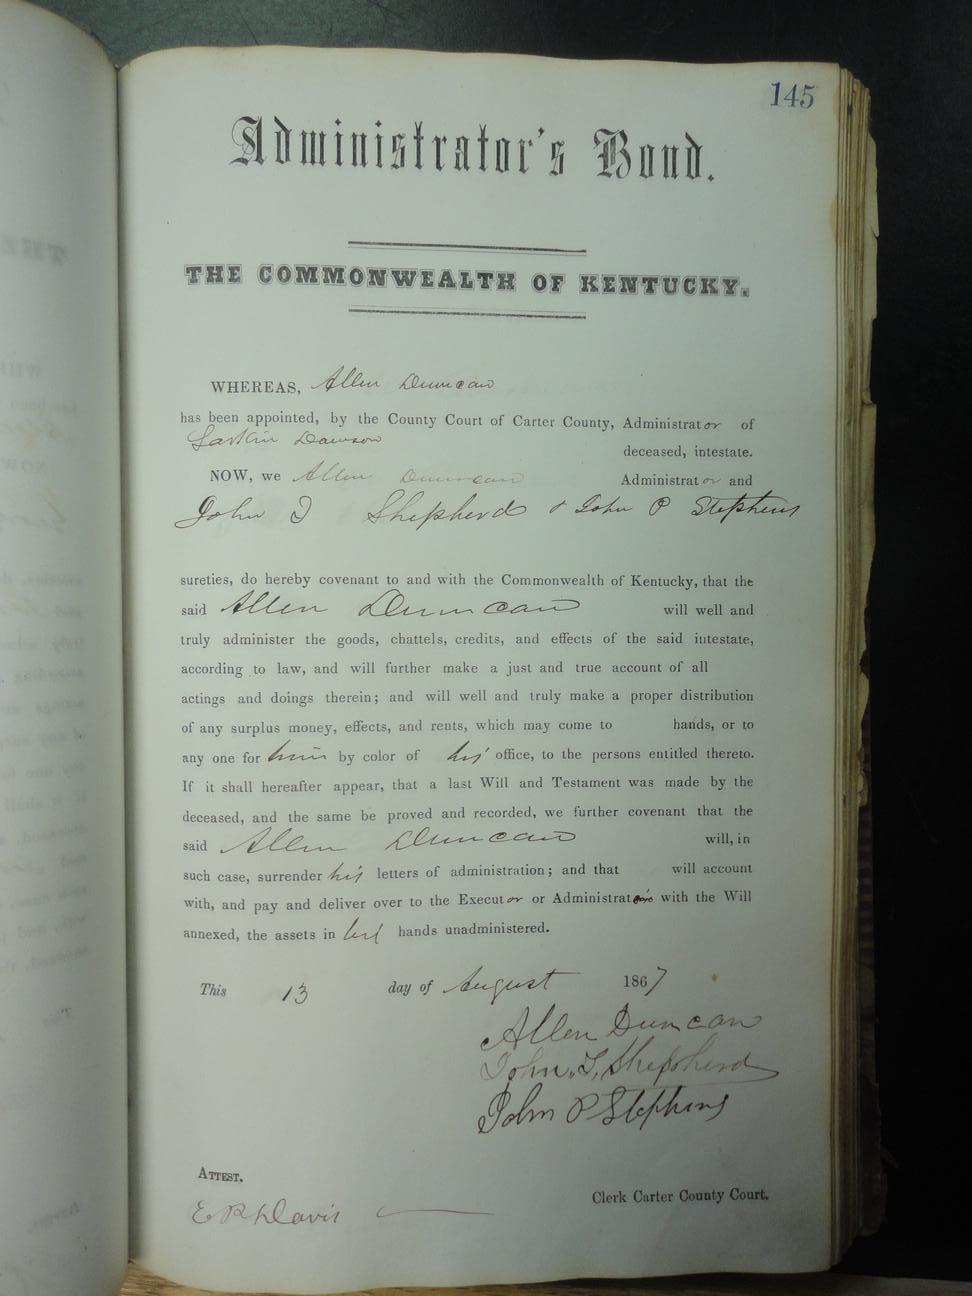 145
Administrator's Bond.
THE COMMONWEALTH OF KENTUCKY.
WHEREAS, Allen Duncan
has been appointed, by the County Court of Carter County, Administrator of
Larkin Dawson
deceased, intestate.
NOW, we Allen Duncan Administrator and
John Shepherd & John P Stephens
sureties, do hereby covenant to and with the Commonwealth of Kentucky, that the
said Allen Duncan will well and
truly administer the goods, chattels, credits, and effects of the said intestate,
according to law, and will further make a just and true account of all
actings and doings therein; and will well and truly make a proper distribution
of any surplus money, effects, and rents, which may come to hands, or to
any one for him by color of his office, to the persons entitled thereto.
If it shall hereafter appear, that a last Will and Testament was made by the
deceased, and the same be proved and recorded, we further covenant that the
said Allen Duncan will, in
such case, surrender his letters of administration; and that will account
with, and pay and deliver over to the Executor or Administrator with the Will
annexed, the assets in his hands unadministered.
This 13 day of August 1867
Allen Duncan
John Shepherd
John P Stephens
ATTEST.
Clerk Carter County Court.
Davis